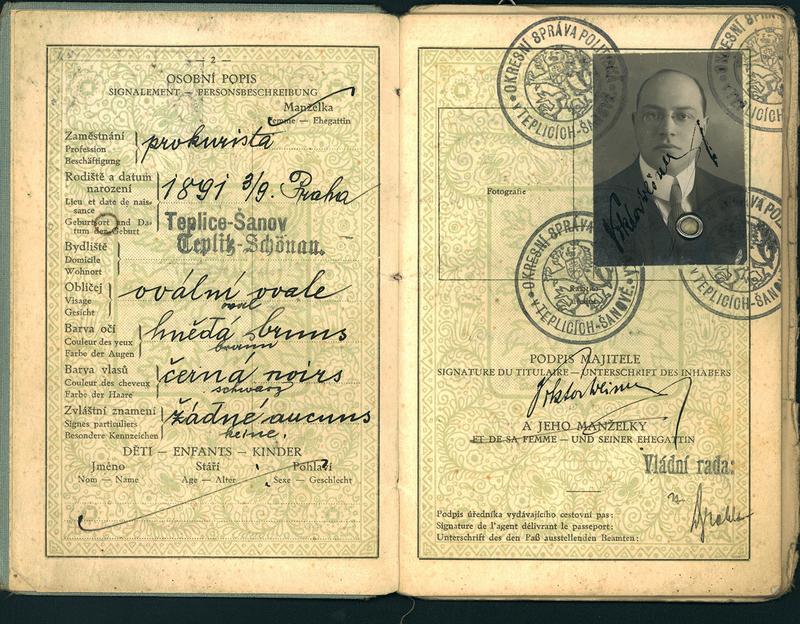 — 2 —
OSOBNÍ POPIS
SIGNALEMENT — PERSONSBESCHREIBUNG
Manželka
Femme — Ehegattin
Zaměstnání
Profession
Beschäftigung
prokurista
Rodiště a datum
narození
Lieu et date de nais-
sance
Geburtsort und Da-
tum der Geburt
1891 3/9. Praha
Bydliště
Domicile
Wohnort
Teplice-Šanov
Teplitz-Schönau.
Obličej
Visage
Gesicht
ovální ovale
oval
Barva očí
Couleur des yeux
Farbe der Augen
hnědá bruns
braun
Barva vlasů
Couleur des cheveux
Farbe der Haare
černá noirs
schwarz
Zvláštní znamení
Signes particuliers
Besondere Kennzeichen
žádné aucuns
keine.
DĚTI — ENFANTS — KINDER
Jméno Stáří Pohlaví
Nom — Name Age — Alter Sexe — Geschlecht
OKRESNÍ SPRÁVA POLITICKÁ
V TEPLICÍCH-ŠANOVĚ
OKRESNÍ SPRÁVA
V TEPLICÍCH-ŠANOVĚ.
Fotografie
PODPIS MAJITELE
SIGNATURE DU TITULAIRE — UNTERSCHRIFT DES INHABERS
A JEHO MANŽELKY
ET DE SA FEMME — UND SEINER EHEGATTIN
Vládní rada:
Podpis úředníka vydávajícího cestovní pas:
Signature de l'agent délivrant le passeport:
Unterschrift des den Paß ausstellenden Beamten: